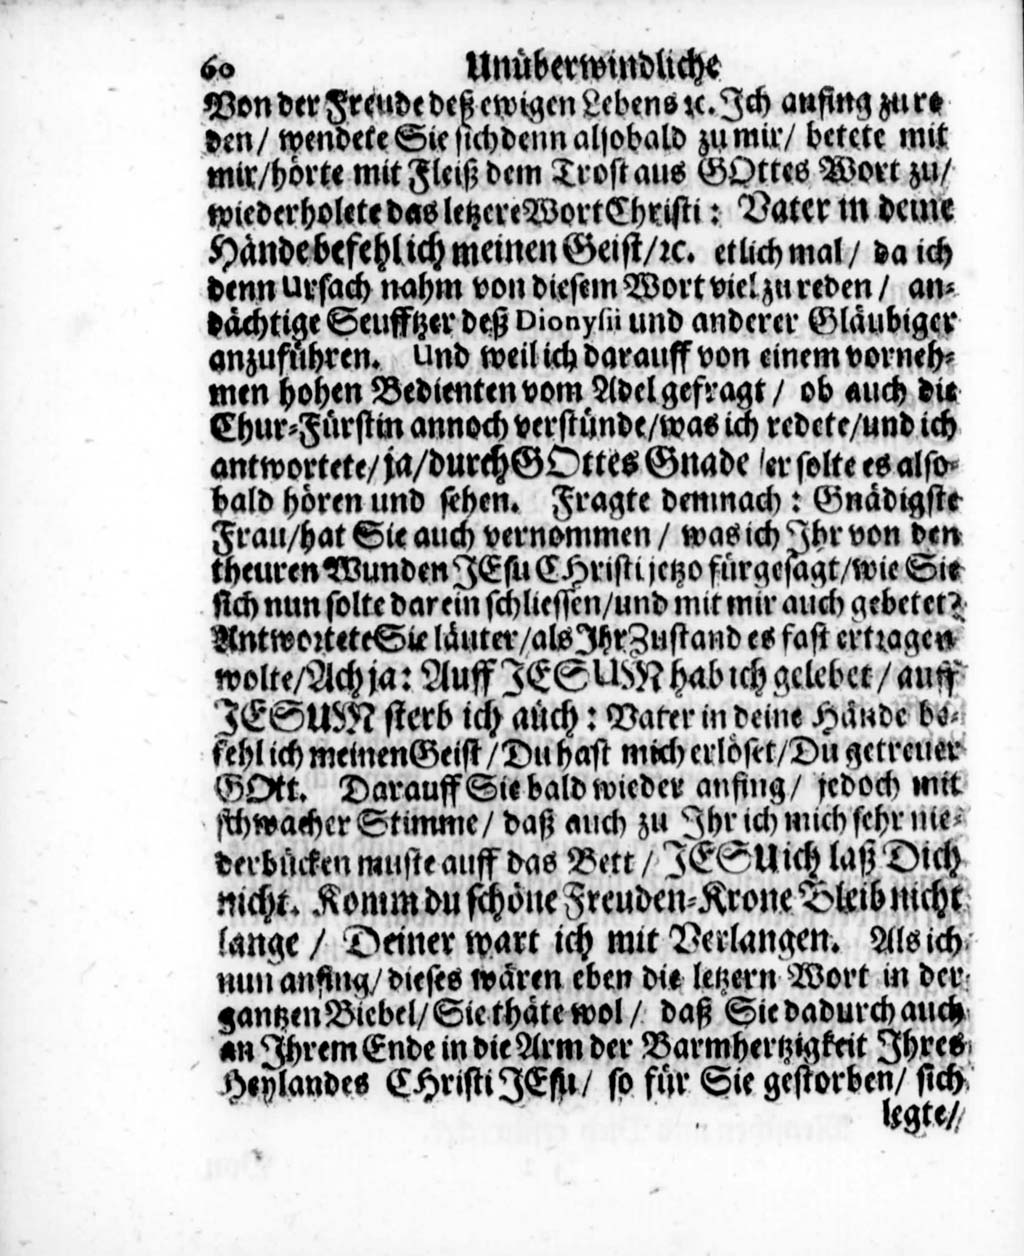 60 Unüberwindliche
Von der Freude deß ewigen Lebens ꝛc. Ich anfing zu re-
den / wendete Sie sich denn alsobald zu mir / betete mit
mir / hörte mit Fleiß dem Trost aus GOttes Wort zu /
wiederholete das letzere Wort Christi : Vater in deine
Hände befehl ich meinen Geist / ꝛc. etlich mal / da ich
denn Ursach nahm von diesem Wort viel zu reden / an-
dächtige Seufftzer deß Dionysii und anderer Gläubiger
anzuführen. Und weil ich darauff von einem vorneh-
men hohen Bedienten vom Adel gefragt / ob auch die
Chur-Fürstin annoch verstünde / was ich redete / und ich
antwortete / ja / durch GOttes Gnade / er solte es also-
bald hören und sehen. Fragte demnach : Gnädigste
Frau / hat Sie auch vernommen / was ich Ihr von den
theuren Wunden JEsu CHristi jetzo fürgesagt / wie Sie
sich nun solte darein schliessen / und mit mir auch gebetet?
Antwortete Sie läuter / als Ihr Zustand es fast ertragen
wolte / Ach ja : Auff JESUM hab ich gelebet / auff
JESUM sterb ich auch : Vater in deine Hände be-
fehl ich meinen Geist / Du hast mich erlöset / Du getreuer
GOtt. Darauff Sie bald wieder anfing / jedoch mit
schwacher Stimme / daß auch zu Ihr ich mich sehr nie-
derbücken muste auff das Bett / JESU ich laß Dich
nicht. Komm du schöne Freuden-Krone Bleib nicht
lange / Deiner wart ich mit Verlangen. Als ich
nun anfing / dieses wären eben die letzern Wort in der
gantzen Biebel / Sie thäte wol / daß Sie dadurch auch
an Ihrem Ende in die Arm der Barmhertzigkeit Ihres
Heylandes CHristi JEsu / so für Sie gestorben / sich
legte /